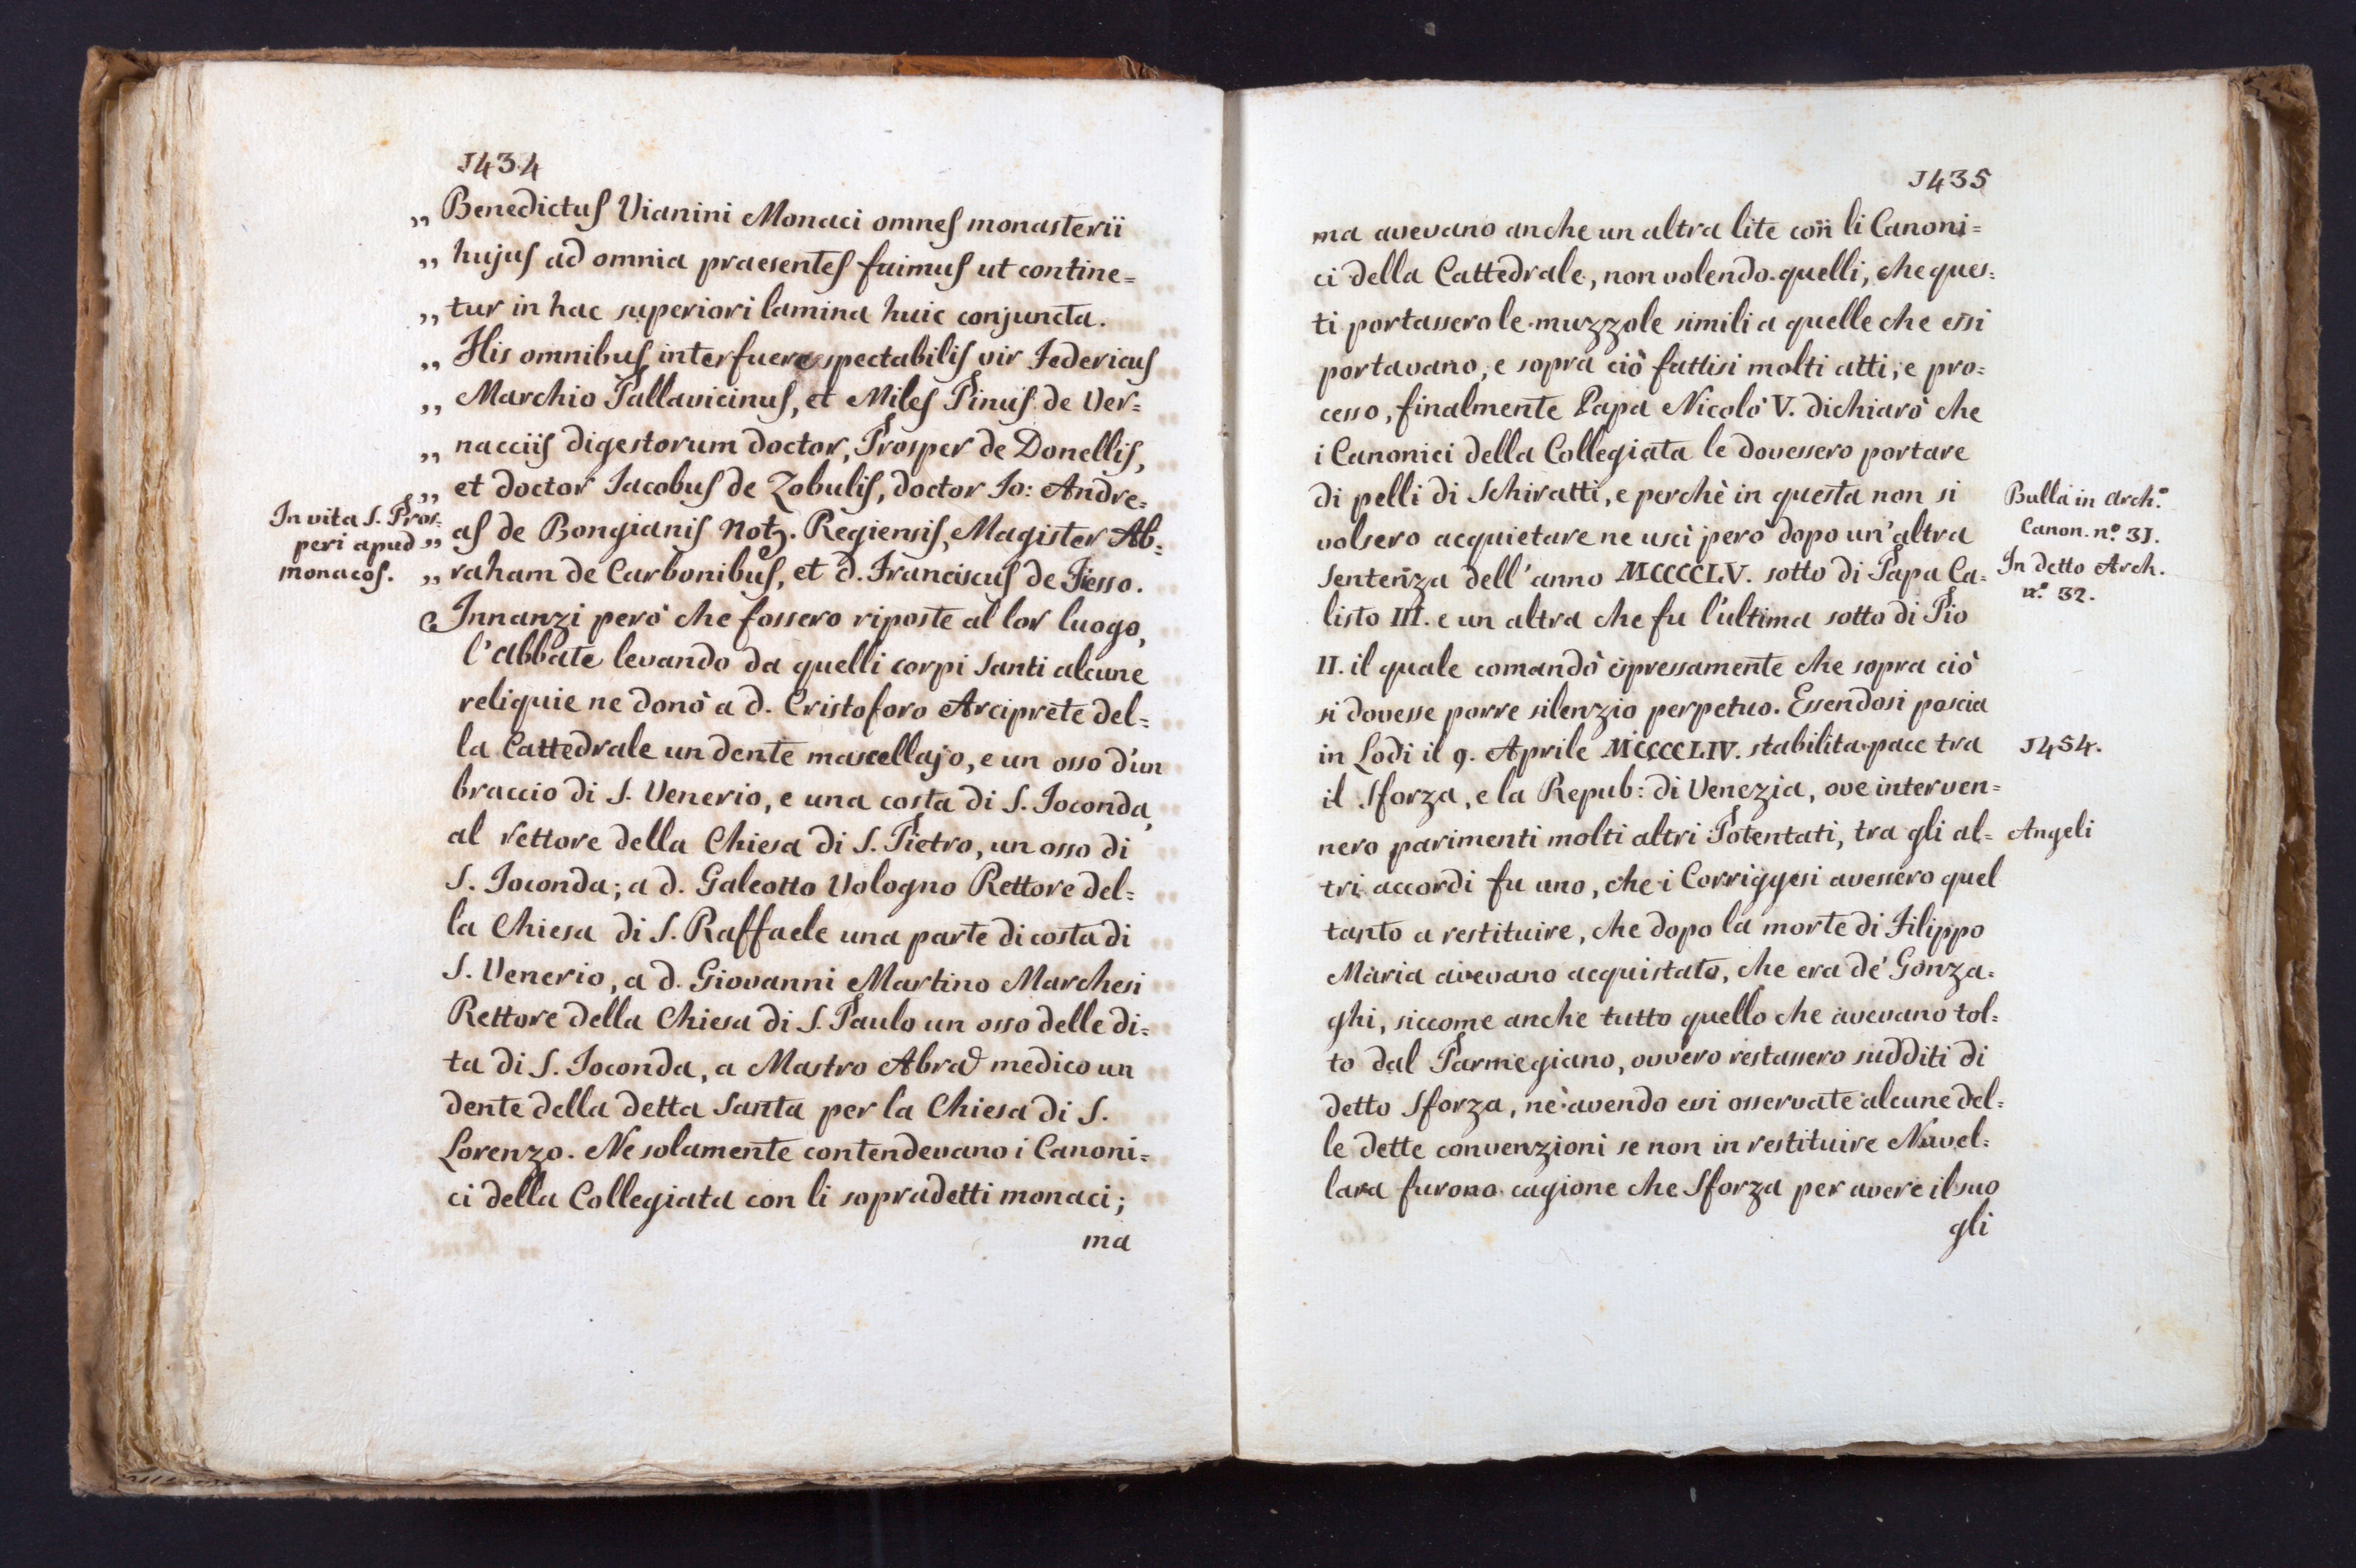 1434
„ Benedictus Vianini Monaci omnes monasterii
„ hujus ad omnia praesentes fuimus ut contine=
„ tur in hac superiori lamina huic conjuncta.
„ His omnibus interfuere spectabilis vir Federicus
„ Marchio Pallavicinus, et Miles Pinus de Ver=
„ nacciis digestorum doctor, Prosper de Donellis,
„ et doctor Iacobus de Zobulis, doctor Io: Andre=
„ as de Bongianis Notz. Regiensis, Magister Ab=
„ raham de Carbonibus, et d. Franciscus de Fiesso.
In vita S. Pros=
peri apud
monacos.
Innanzi però che fossero riposte al lor luogo,
l'Abbate levando da quelli corpi Santi alcune
reliquie ne donò a d. Cristoforo Arciprete del=
la Cattedrale un dente mascellajo, e un osso d'un
braccio di S. Venerio, e una costa di S. Ioconda,
al rettore della Chiesa di S. Pietro, un osso di
S. Ioconda; a d. Galeotto Vologno Rettore del=
la Chiesa di S. Raffaele una parte di costa di
S. Venerio, a d. Giovanni Martino Marchesi
Rettore della Chiesa di S. Paulo un osso delle di=
ta di S. Ioconda, a Mastro Abrað medico un
dente della detta Santa per la Chiesa di S.
Lorenzo. Ne solamente contendevano i Canoni=
ci della Collegiata con li sopradetti monaci;
ma
1435
ma avevano anche un altra lite con li Canoni=
ci della Cattedrale, non volendo quelli, che ques=
ti portassero le muzzole simili a quelle che essi
portavano, e sopra ciò fattisi molti atti, e pro=
cesso, finalmente Papa Nicolò V. dichiarò che
i Canonici della Collegiata le dovessero portare
di pelli di Schiratti, e perchè in questa non si
volsero acquietare ne uscì però dopo un'altra
Sentenza dell'anno MCCCCLV. sotto di Papa Ca=
listo III. e un altra che fu l'ultima sotto di Pio
II. il quale comandò espressamente che sopra ciò
si dovesse porre silenzio perpetuo. Essendosi poscia
in Lodi il 9. Aprile MCCCCLIV. stabilita pace tra
il Sforza, e la Repub: di Venezia, ove interven=
nero parimenti molti altri Potentati, tra gli al=
tri accordi fu uno, che i Corriggesi avessero quel
tanto a restituire, che dopo la morte di Filippo
Maria avevano acquistato, che era de' Gonza=
ghi, siccome anche tutto quello che avevano tol=
to dal Parmegiano, ovvero restassero sudditi di
detto Sforza, nè avendo essi osservate alcune del=
le dette convenzioni se non in restituire Nuvel=
lara furono cagione che Sforza per avere il suo
gli
Bulla in Arch.º
Canon. n.º 31.
In detto Arch.
n.º 32.
1454.
Angeli